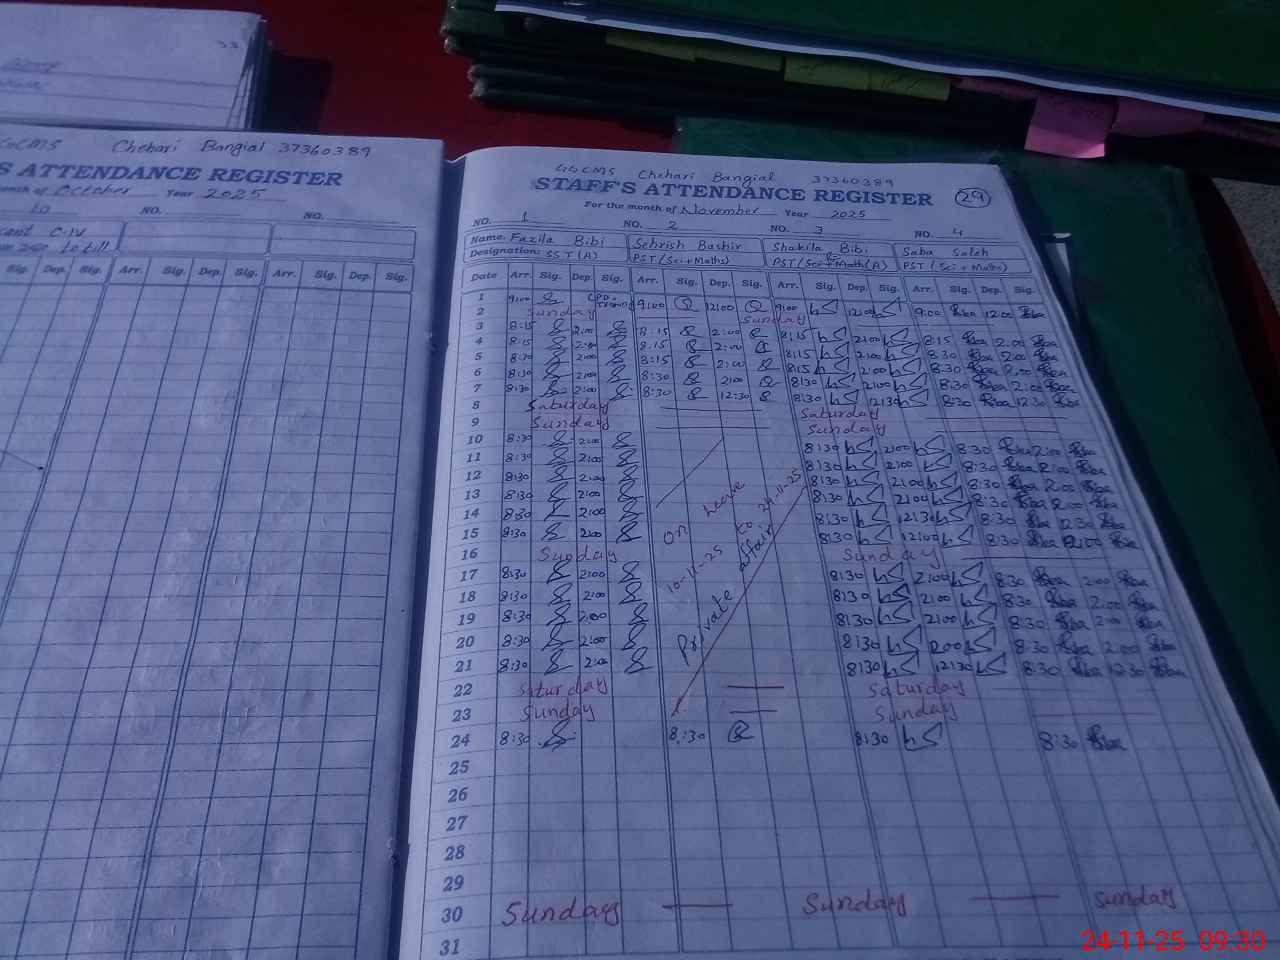 Chehari Bangial 37360389
S ATTENDANCE REGISTER
onth of October Year 2025
NO. NO.
C-IV
Sig. Dep. Sig. Arr. Sig. Dep. Sig. Arr. Sig. Dep. Sig.
GGCMS Chehari Bangial 37360389
STAFF'S ATTENDANCE REGISTER 29
For the month of November Year 2025
NO. 1 NO. 2 NO. 3 NO. 4
Name. Fazila Bibi Sehrish Bashir Shakila Bibi Saba Saleh
Designation: SST(A) PST(Sci+Maths) PST(Sci+Math(A) PST(Sci+Maths)
Date Arr. Sig. Dep. Sig. Arr. Sig. Dep. Sig. Arr. Sig. Dep. Sig. Arr. Sig. Dep. Sig.
1 9:00 9:00 12:00 9:00 12:00 9:00 12:00
2 Sunday Sunday
3 8:15 2:00 8:15 2:00 8:15 2:00 8:15 2:00
4 8:15 2:00 8:15 2:00 8:15 2:00 8:30 2:00
5 8:30 2:00 8:15 2:00 8:15 2:00 8:30 2:00
6 8:30 2:00 8:30 2:00 8:30 2:00 8:30 2:00
7 8:30 2:00 8:30 12:30 8:30 12:30 8:30 12:30
8 Saturday Saturday
9 Sunday Sunday
10 8:30 2:00 8:30 2:00 8:30 2:00
11 8:30 2:00 8:30 2:00 8:30 2:00
12 8:30 2:00 8:30 2:00 8:30 2:00
13 8:30 2:00 8:30 2:00 8:30 2:00
14 8:30 2:00 8:30 12:30 8:30 12:30
15 8:30 2:00 8:30 12:00 8:30 12:00
On Leave
10-11-25 to 24-11-25
Private affair
16 Sunday Sunday
17 8:30 2:00 8:30 2:00 8:30 2:00
18 8:30 2:00 8:30 2:00 8:30 2:00
19 8:30 2:00 8:30 2:00 8:30 2:00
20 8:30 2:00 8:30 2:00 8:30 2:00
21 8:30 2:00 8:30 12:30 8:30 12:30
22 Saturday Saturday
23 Sunday Sunday
24 8:30 8:30 8:30 8:30
25
26
27
28
29
30 Sunday Sunday Sunday
31
24-11-25 09:30